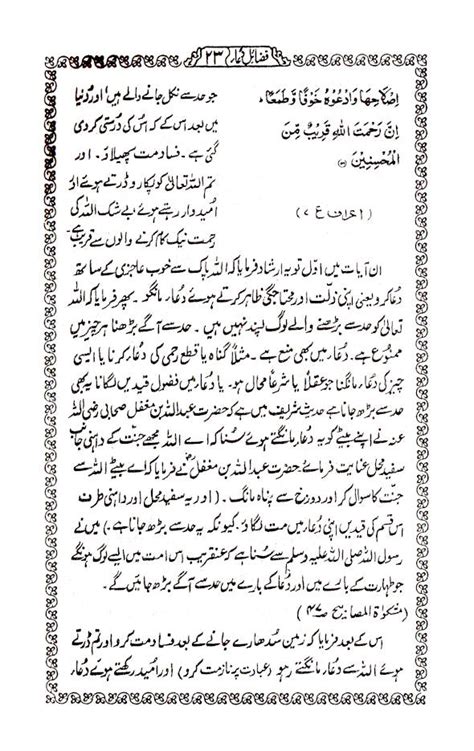 فضائل دعاء ۲۳
اِصْلَاحِهَا وَادْعُوْهُ خَوْفًا وَّطَمَعًا ؕ
اِنَّ رَحْمَتَ اللهِ قَرِيْبٌ مِّنَ
الْمُحْسِنِيْنَ
(اعراف ع ۷)
جو حد سے نکل جانے والے ہیں اور دنیا
میں بعد اس کے کہ اس کی درستی کر دی
گئی ہے۔ فساد مت پھیلاؤ۔ اور
تم اللہ تعالیٰ کو پکارو ڈرتے ہوئے اور
امیدوار رہتے ہوئے بے شک اللہ کی
رحمت نیک کام کرنے والوں سے قریب ہے۔
ان آیات میں اوّل تو یہ ارشاد فرمایا کہ اللہ پاک سے خوب عاجزی کے ساتھ
دعا کرو یعنی اپنی ذلت اور محتاجگی ظاہر کرتے ہوئے دعاء مانگو۔ پھر فرمایا کہ اللہ
تعالیٰ کو حد سے بڑھنے والے لوگ پسند نہیں ہیں۔ حد سے آگے بڑھنا ہر چیز میں
ممنوع ہے۔ دعاء میں بھی منع ہے۔ مثلاً گناہ یا قطع رحمی کی دعاء کرنا یا ایسی
چیز کی دعاء مانگنا جو عقلاً یا شرعاً محال ہو۔ یا دعاء میں فضول قیدیں لگانا یہ بھی
حد سے بڑھ جانا ہے حدیث شریف میں ہے کہ حضرت عبداللہ بن مغفل صحابی رضی اللہ
عنہ نے اپنے بیٹے کو یہ دعاء مانگتے ہوئے سُنا کہ اے اللہ مجھے جنّت کے داہنی جانب
سفید محل عنایت فرمائیے حضرت عبداللہ بن مغفلؓ نے فرمایا کہ اے بیٹے اللہ سے
جنّت کا سوال کر اور دوزخ سے پناہ مانگ۔ (اور یہ سفید محل اور داہنی طرف
اس قسم کی قیدیں اپنی دُعاء میں مت لگاؤ۔ کیونکہ یہ حد سے بڑھ جانا ہے) میں نے
رسول اللہ صلی اللہ علیہ وسلم سے سُنا ہے کہ عنقریب اس امت میں ایسے لوگ ہونگے
جو طہارت کے بارے میں اور دُعا کے بارے میں حد سے آگے بڑھ جائیں گے۔
(مشکوٰۃ المصابیح ص ۴۷)
اس کے بعد فرمایا کہ زمین سُدھارے جانے کے بعد فساد مت کرو اور تم ڈرتے
ہوئے اللہ سے دعاء مانگتے رہو (عبادت پر ناز مت کرو) اور اُمید رکھتے ہوئے دُعاء